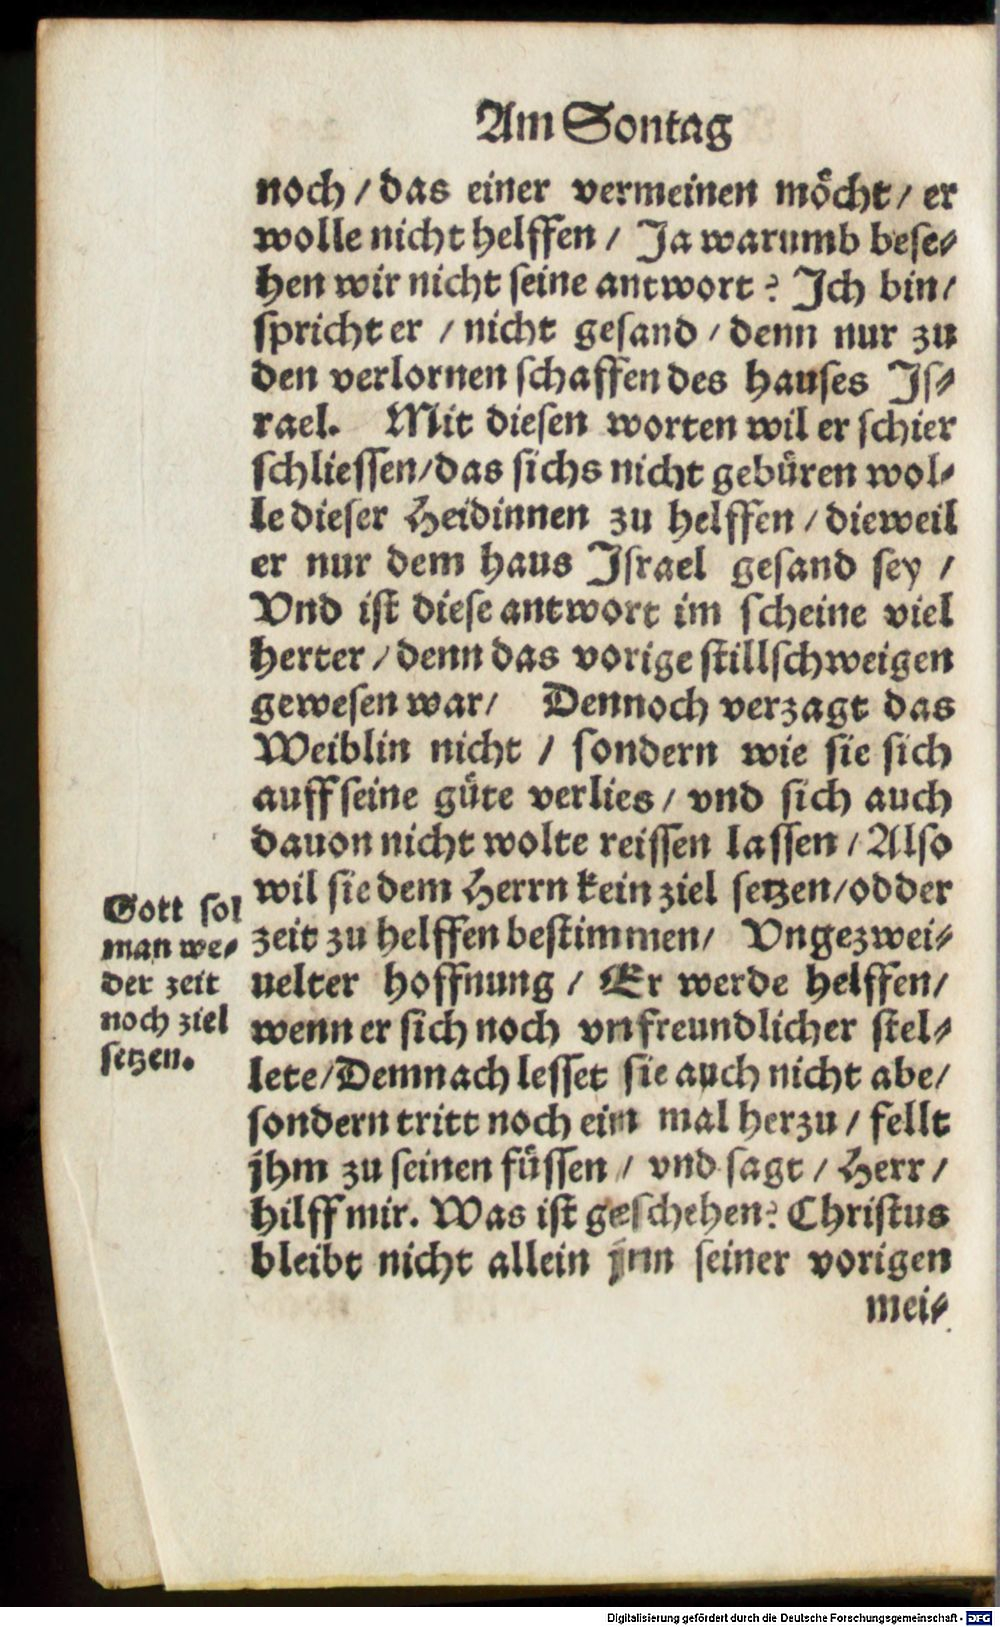 Am Sontag
noch / das einer vermeinen möcht / er
wolle nicht helffen / Ja warumb bese⸗
hen wir nicht seine antwort? Ich bin /
spricht er / nicht gesand / denn nur zu
den verlornen schaffen des hauses Is⸗
rael. Mit diesen worten wil er schier
schliessen / das sichs nicht gebüren wol⸗
le dieser Heidinnen zu helffen / dieweil
er nur dem haus Israel gesand sey /
Vnd ist diese antwort im scheine viel
herter / denn das vorige stillschweigen
gewesen war / Dennoch verzagt das
Weiblin nicht / sondern wie sie sich
auff seine güte verlies / vnd sich auch
dauon nicht wolte reissen lassen / Also
wil sie dem Herrn kein ziel setzen / odder
zeit zu helffen bestimmen / Vngezwei⸗
uelter hoffnung / Er werde helffen /
wenn er sich noch vnfreundlicher stel⸗
lete / Demnach lesset sie auch nicht abe /
sondern tritt noch ein mal herzu / fellt
jhm zu seinen füssen / vnd sagt / Herr /
hilff mir. Was ist geschehen? Christus
bleibt nicht allein jnn seiner vorigen
mei⸗
Gott sol
man we⸗
der zeit
noch ziel
setzen.
Digitalisierung gefördert durch die Deutsche Forschungsgemeinschaft - DFG